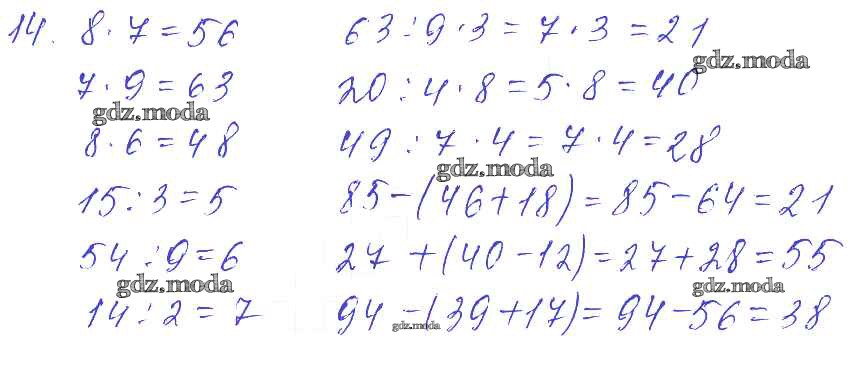 14. 8·7=56 63:9·3=7·3=21
gdz.moda
7·9=63 20:4·8=5·8=40
gdz.moda
8·6=48 49:7·4=7·4=28
gdz.moda
15:3=5 85-(46+18)=85-64=21
54:9=6 27+(40-12)=27+28=55
gdz.moda gdz.moda
14:2=7 94-(39+17)=94-56=38
gdz.moda